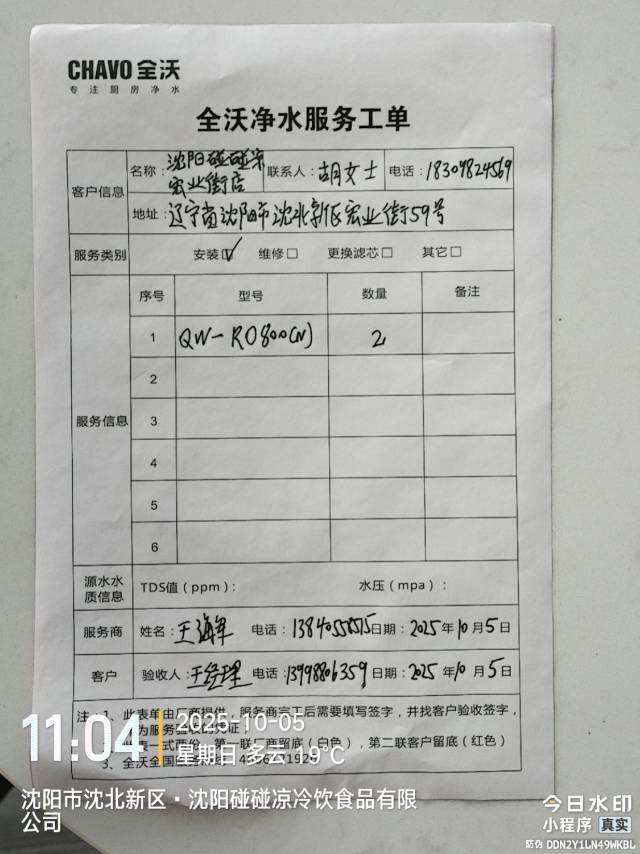 CHAVO 全沃
专注厨房净水
全沃净水服务工单
客户信息
名称：沈阳碰碰凉宏业街店 联系人：胡女士 电话：18309824569
地址：辽宁省沈阳市沈北新区宏业街59号
服务类别 安装☑ 维修□ 更换滤芯□ 其它□
服务信息
序号 型号 数量 备注
1 QW-RO800(N) 2
2
3
4
5
6
源水水质信息 TDS值（ppm）： 水压（mpa）：
服务商 姓名：王海军 电话：13840558575 日期：2025年10月5日
客户 验收人：王经理 电话：13998806359 日期：2025年10月5日
注：1、此表单由厂商提供，服务商完工后需要填写签字，并找客户验收签字，
为服务验收的凭证
表一式两份，第一联厂商留底（白色），第二联客户留底（红色）
3、全沃全国
11:04
2025-10-05
星期日 多云 19℃
沈阳市沈北新区·沈阳碰碰凉冷饮食品有限公司
今日水印
小程序 真实
防伪 DDN2Y1LN49WKBL